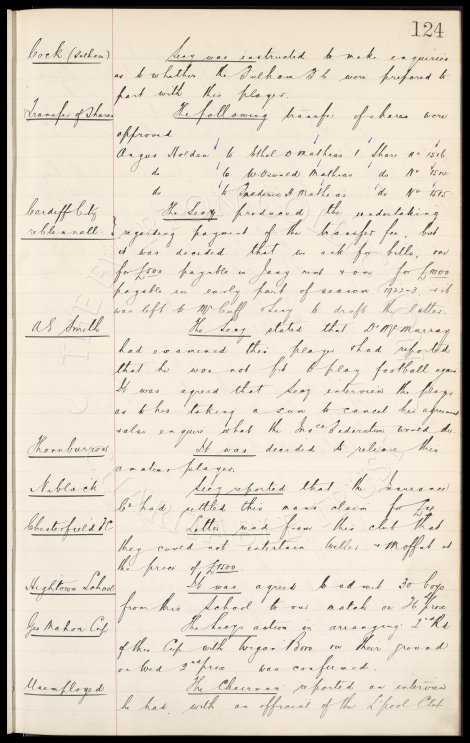 124
Cock (Fulham) Secy was instructed to make enquiries
as to whether the Fulham F C were prepared to
part with this player.
Transfer of Shares The following transfer of shares were
approved
Angus Holden to Ethel D Mathias 1 Share No 1516
do to W Oswald Mathias do No
do to Frederic A Mathias do No 1515
Cardiff City The Secy produced the undertaking
re Clennell regarding payment of the transfer fee, but
it was decided that we ask for bills, one
for £500 payable in Jany next & one for £1000
payable in early part of season 1922-3 & it
was left to Mr Cuff & Secy to draft the latter.
A.E. Smith The Secy stated that Dr McMurray
had examined this player & had reported
that he was not fit to play football again
It was agreed that Secy interview the player
as to his taking a sum to cancel his agreement
& also enquire what the Insce Federation would do.
Thornburrows It was decided to release this
amateur player.
Niblack Secy reported that the Insurance
Co had settled this mans claim for
Chesterfield FC Letter read from this club that
they could not entertain Weller & Moffat at
the price of £1500.
Hightown School It was agreed to admit 30 boys
from this School to our match on 26 prox
Geo Mahon Cup The Secys action in arranging 2nd Rd
of this Cup with Wigan Boro on their ground
on Wed 2nd prox was confirmed.
Unemployed The Chairman reported an interview
he had with an official of the L'pool Club